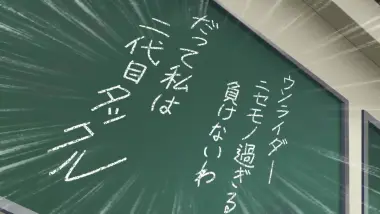 ウソライダー
ニセモノ過ぎる
負けないわ
だって私は
二代目タックル